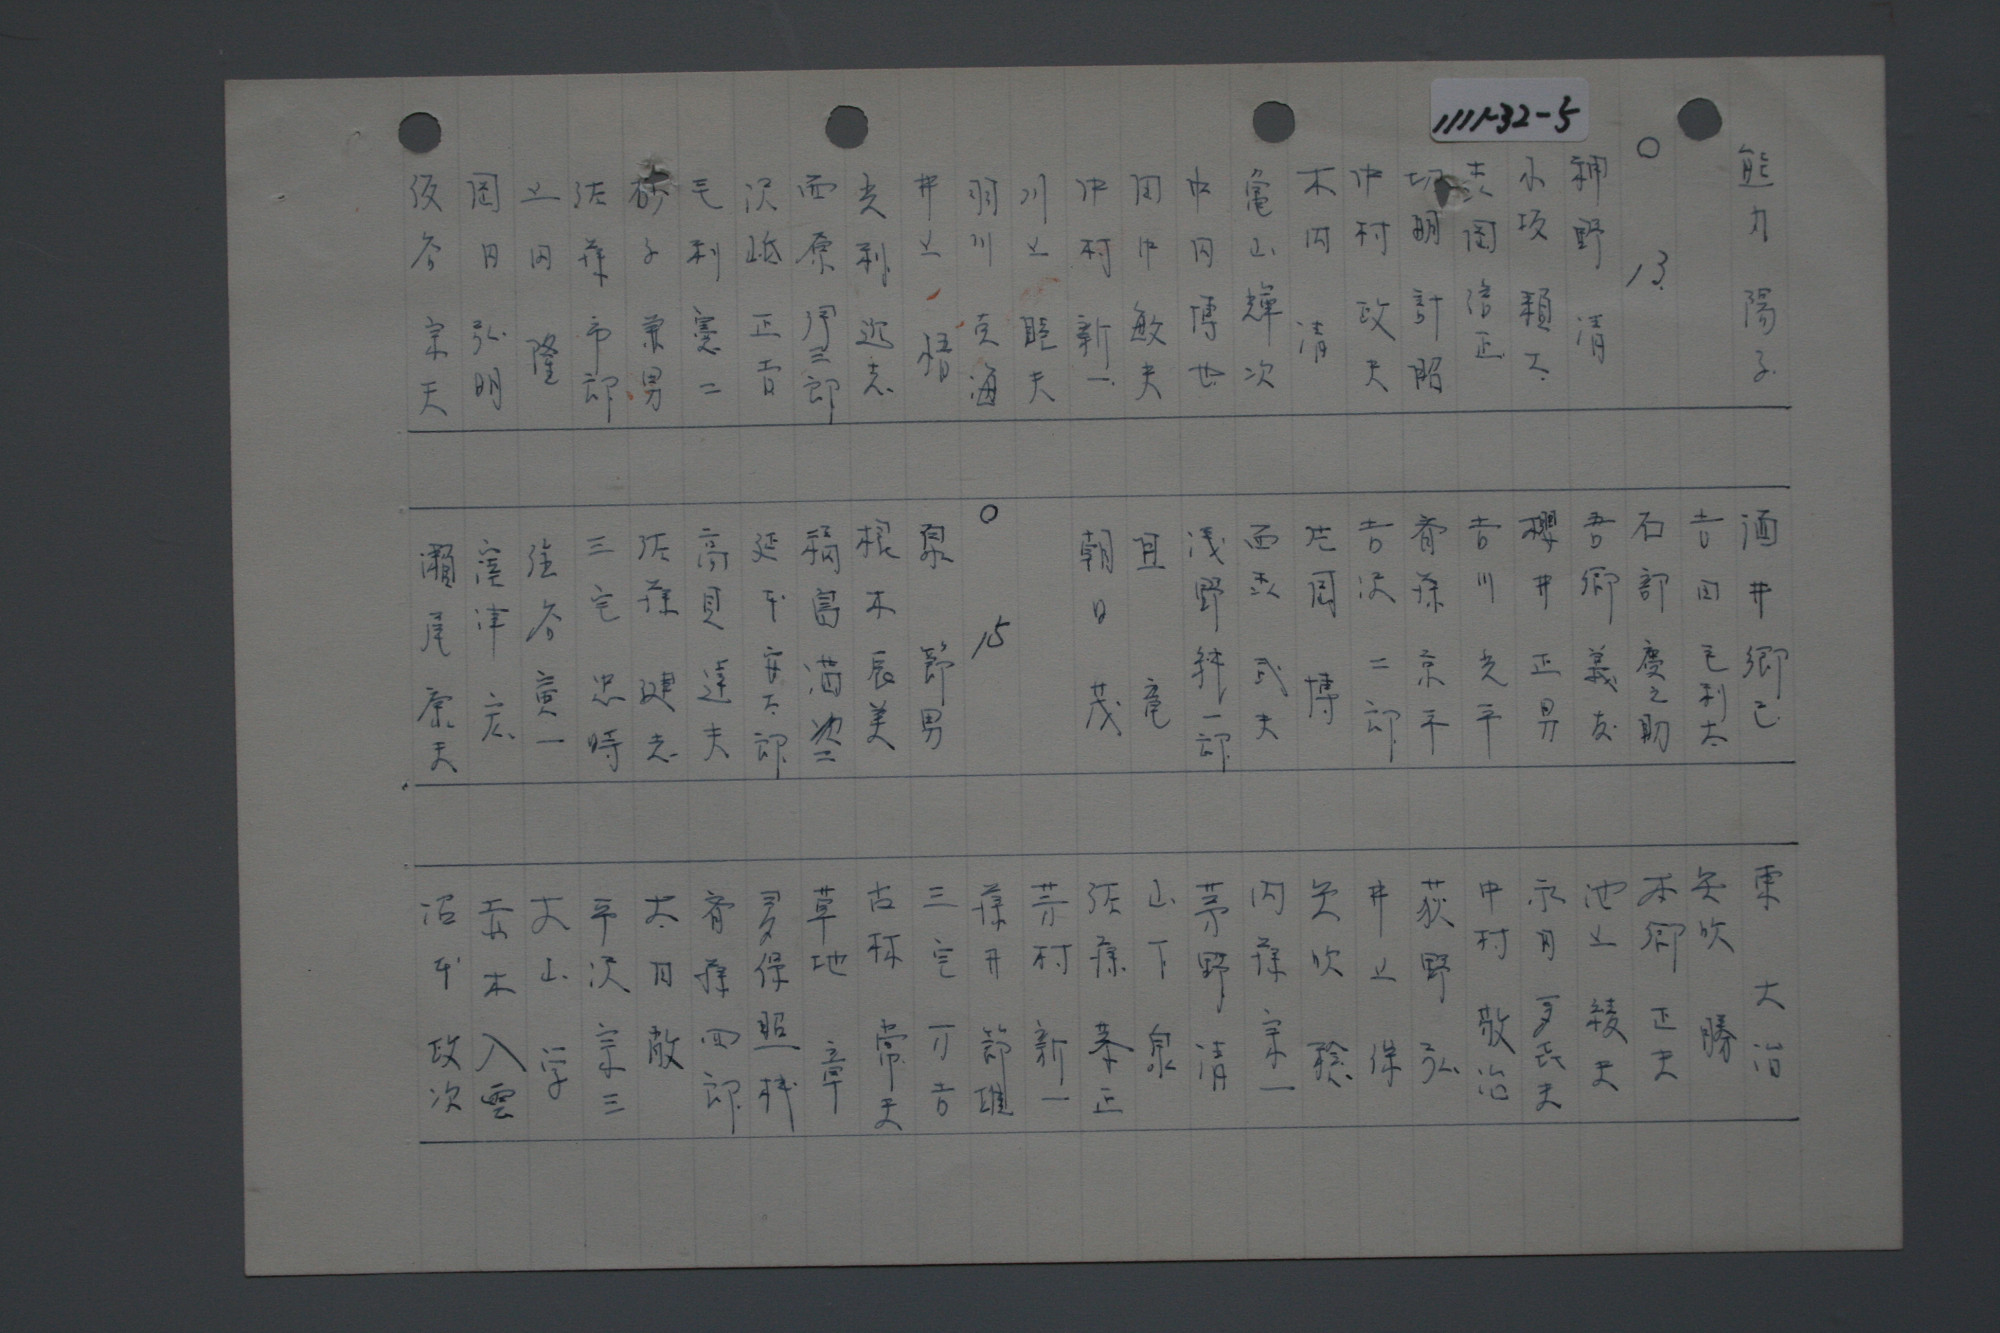 1111-32-5
熊力陽子
○ 13.
神野 清
小坂頼太
吉岡信正
坂明計昭
中村政夫
木内 清
亀山輝次
中内博也
田中敏夫
中村新一
川上睦夫
羽川克海
井上 悟
光利近志
西原周三郎
沢紙正吉
毛利憲二
砂子兼男
佐藤市郎
上田 隆
岡田弘明
仮谷宗夫
酒井郷已
吉田毛利太
石部慶之助
吾郷義友
櫻井正男
吉川光平
斉藤京平
吉沢二郎
花岡 博
西森武夫
浅野鉾一郎
亘 竜
朝日 茂
○ 15
泉 節男
根木辰美
稲富満盜
延本安太郎
高貝達夫
佐藤健志
三宅忠時
往谷寅一
窪津 宏
瀬尾康夫
東 大治
矢吹 勝
本郷正夫
池上綾夫
永月多喜夫
中村敬治
荻野 弘
井上 保
矢吹 稔
内藤宗一
茅野 清
山下 泉
佐藤泰正
芳村新一
藤井節雄
三宅万吉
古林常夫
草地 章
多保照桟
斉藤四郎
太田 敵
平沢宗三
大山 学
赤木入雲
沼本政次